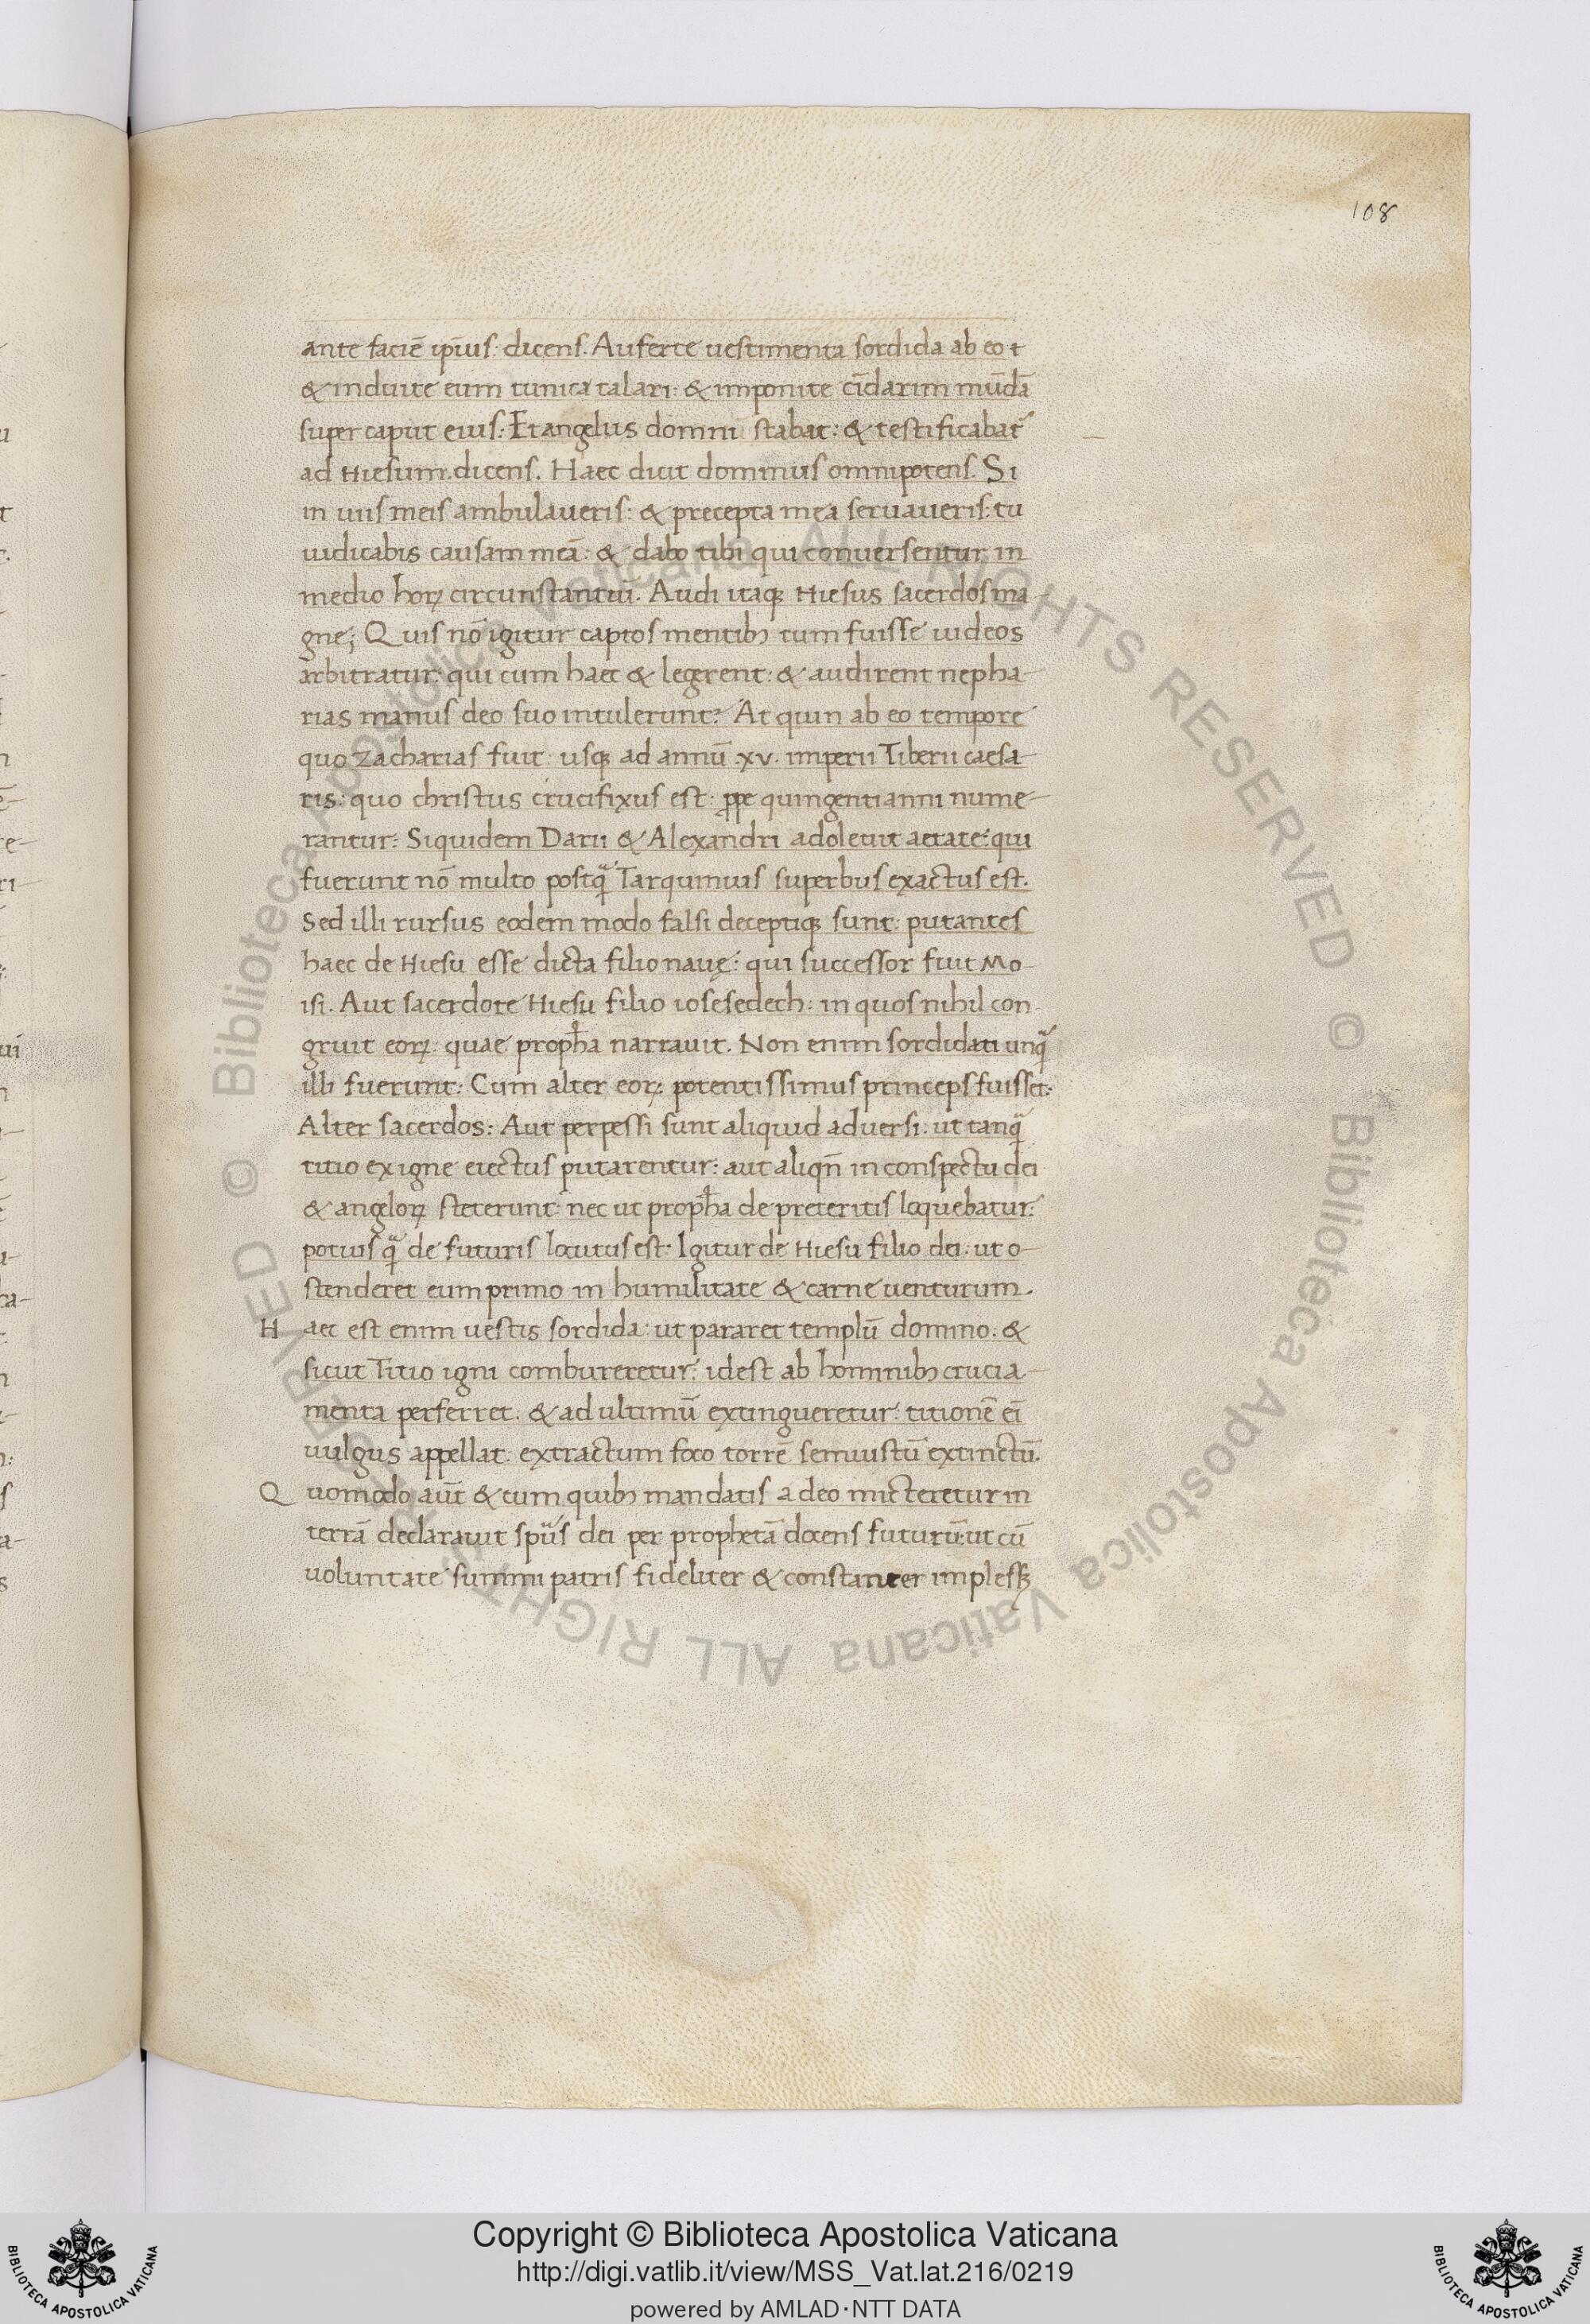 108
ante faciē ip̄ius: dicens. Auferte uestimenta sordida ab eo t
& induite eum tunica talari: & imponite cīdarim mūdā
super caput eius: Et angelus domni stabat: & testificabat᷑
ad Hiesum. dicens. Haec dicit dominus omnipotens. Si
in uiis meis ambulaueris: & precepta mea seruaueris: tu
iudicabis causam meā: & dabo tibi qui conuersentur in
medio hoꝝ circunstantiū. Audi itaqꝫ Hiesus sacerdos ma
gne; Quis nō igitur captos mentibꝫ tum fuisse iudeos
arbitratur: qui cum haec & legerent: & audirent nepha-
rias manus deo suo intulerunt? At quin ab eo tempore
quo Zacharias fuit: usqꝫ ad annū .xv. imperii Tiberii caesa-
ris: quo christus crucifixus est: ꝓpe quingenti anni nume-
rantur: Siquidem Darii & Alexandri adoleuit aetate: qui
fuerunt nō multo postqᷓ Tarquinius superbus exactus est.
Sed illi rursus eodem modo falsi deceptiqꝫ sunt: putantes
haec de Hiesu esse dicta filio nauę: qui successor fuit Mo-
isi. Aut sacerdote Hiesu filio iosesedech: in quos nihil con
gruit eoꝝ: quae prop̄ha narrauit. Non enim sordidati unqᷓ
illi fuerunt: Cum alter eoꝝ: potentissimus princeps fuisset:
Alter sacerdos: Aut perpessi sunt aliquid aduersi: ut tanqᷓ
titio ex igne eiectus putarentur: aut aliqn̄ in conspectu dei
& angeloꝝ steterunt: nec ut prop̄ha de preteritis loquebatur:
potius qᷓ de futuris locutus est: Igitur de Hiesu filio dei: ut o-
stenderet eum primo in humilitate & carne uenturum.
H aec est enim uestis sordida: ut pararet templū domino: &
sicut Titio igni combureretur: idest ab hominibꝫ crucia-
menta perferret. & ad ultimū extingueretur: titionē ei̅
uulgus appellat. extractum foco torrē semiustū extinctū.
Q uomodo aūt & cum quibꝫ mandatis a deo micteretur in
terrā declarauit spūs dei per prophetā docens futurū: ut cū
uoluntate summi patris fideliter & constanter implessꝫ
Copyright © Biblioteca Apostolica Vaticana
http://digi.vatlib.it/view/MSS_Vat.lat.216/0219
powered by AMLAD·NTT DATA
BIBLIOTECA APOSTOLICA VATICANA
BIBLIOTECA APOSTOLICA VATICANA
© Biblioteca Apostolica Vaticana ALL RIGHTS RESERVED © Biblioteca Apostolica Vaticana ALL RIGHTS RESERVED